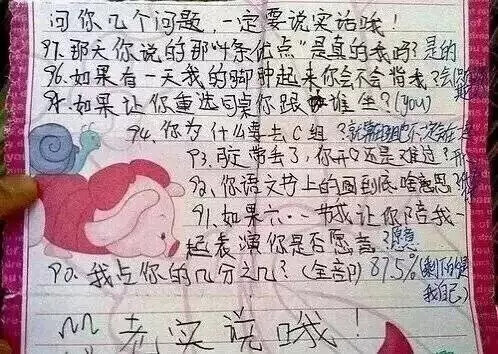 问你几个问题,一定要说实话哦!
97.那天你说的那"十条优点"是真的我吗?是的
96.如果有一天我的脚肿起来你会不会背我?会
95.如果让你重选同桌你跟谁坐?(you)
94.你为什么要去C组?就算
93.发带丢了,你开心还是难过?开
92.你语文书上的画到底啥意思?
91.如果六·一节我让你陪我一
起表演你是否愿意?愿意
90.我占你的几分之几?(全部)87.5%(剩下的是
我自己)
老实说哦!